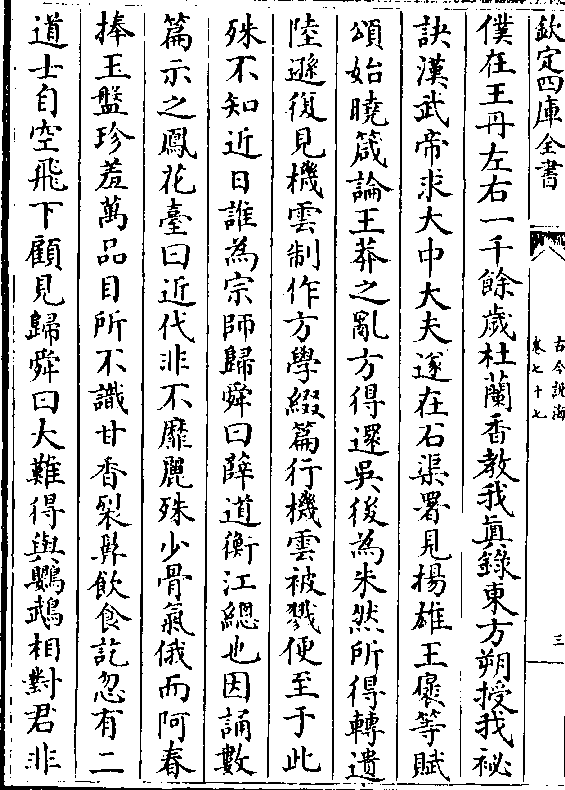 欽定四庫全書
古今說海
卷七十七
三
僕在王丹左右一千餘歲杜蘭香教我真錄東方朔授我祕
訣漢武帝求大中大夫遂在石渠署見揚雄王襃等賦
頌始曉箴論王莽之亂方得還吳後為朱然所得轉遺
陸遜復見機雲制作方學綴篇行機雲被戮便至于此
殊不知近日誰為宗師歸舜曰薛道衡江總也因誦數
篇示之鳳花臺曰近代非不靡麗殊少骨氣俄而阿春
捧玉盤珍羞萬品目所不識甘香裂鼻飲食訖忽有二
道士自空飛下顧見歸舜曰大難得與鸚鵡相對君非